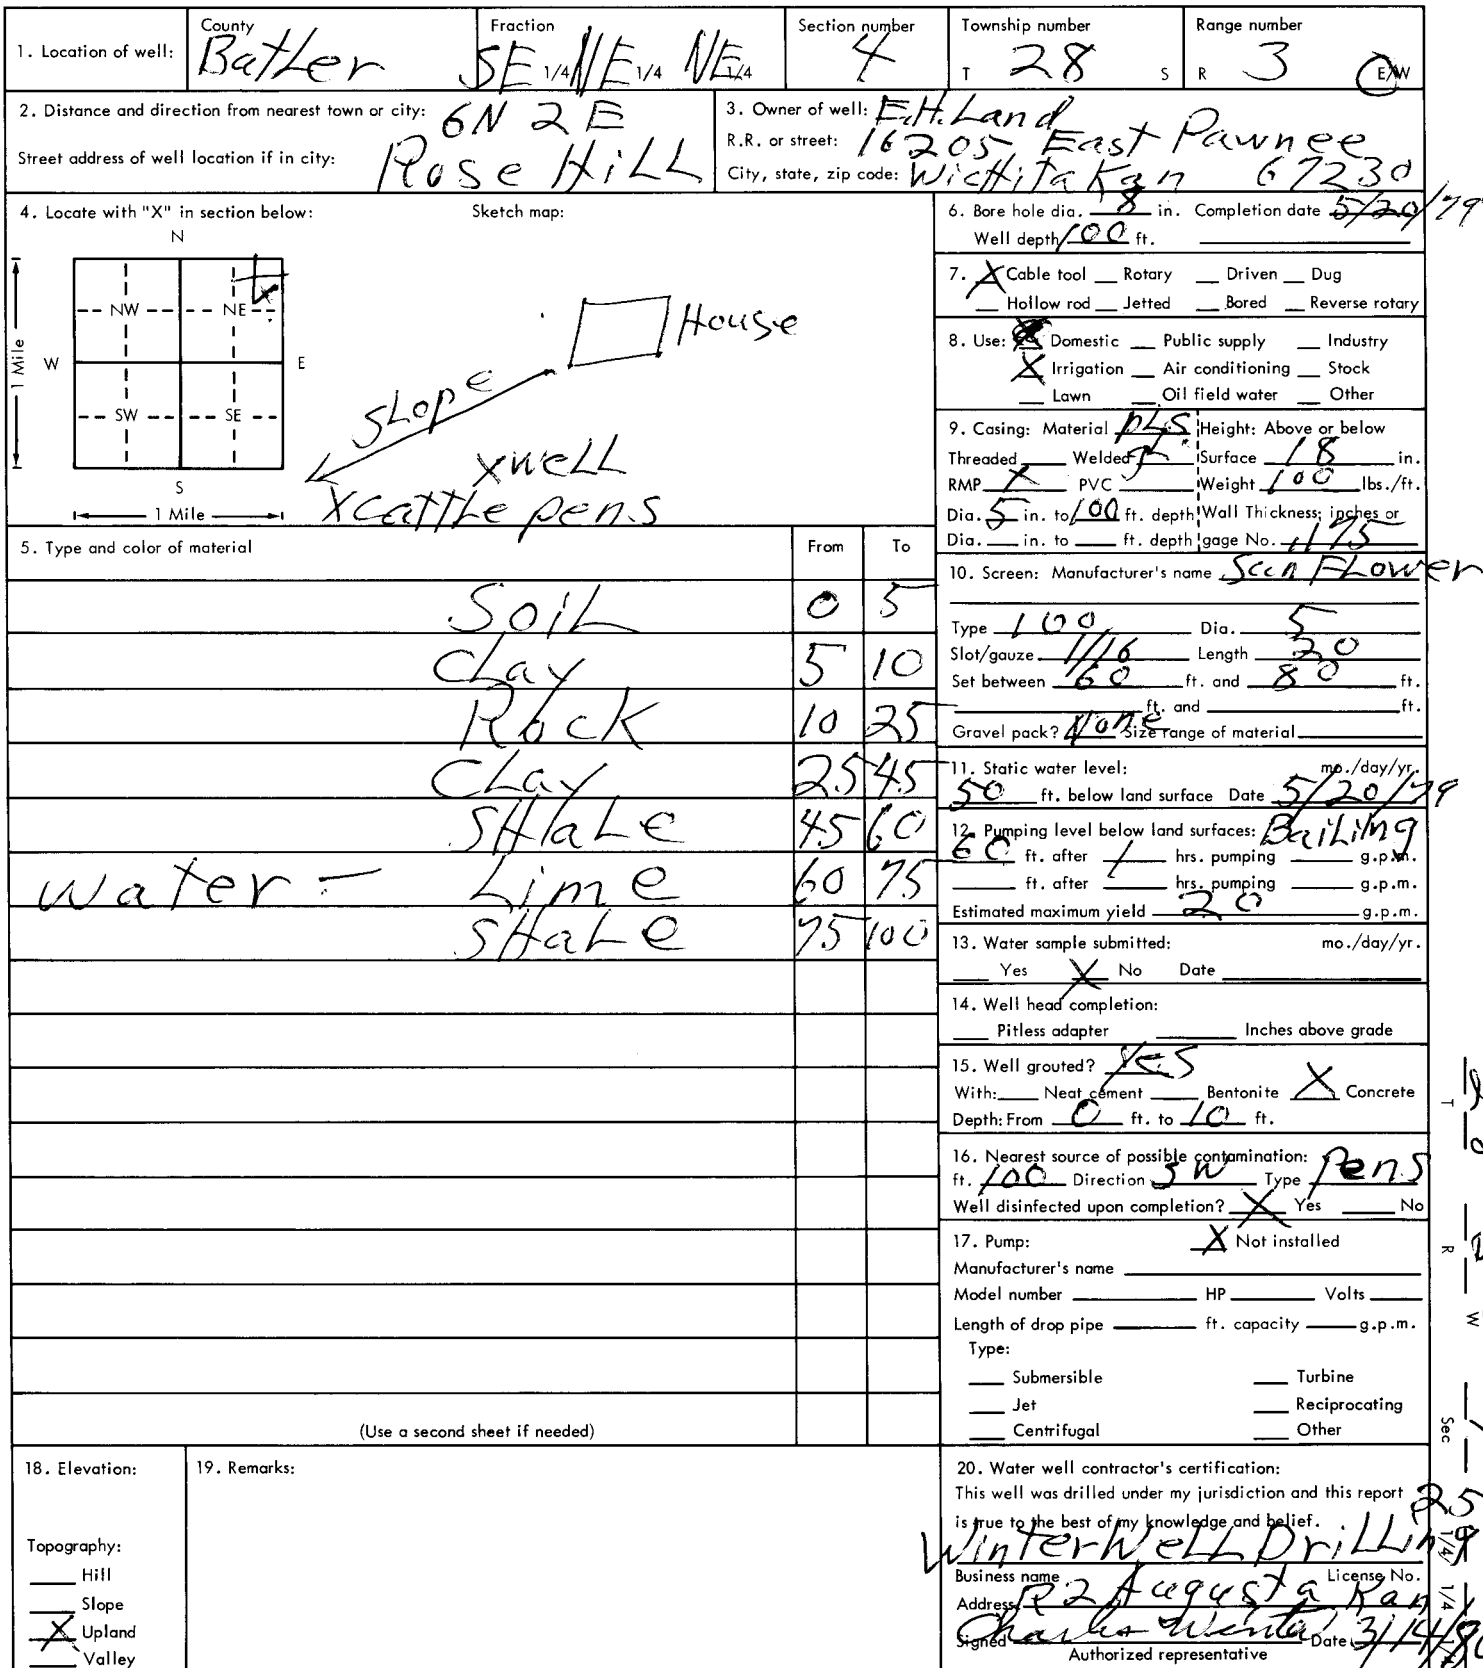 County Fraction Section number Township number Range number
1. Location of well: Butler SE 1/4 NE 1/4 NE 1/4 4 T 28 S R 3 E/W
2. Distance and direction from nearest town or city: 6N 2E
Street address of well location if in city: Rose Hill
3. Owner of well: E.H. Land
R.R. or street: 16205 East Pawnee
City, state, zip code: Wichita Kan 67230
4. Locate with "X" in section below: Sketch map:
N
NW NE
W E
1 Mile
SW SE
S
1 Mile
House
Slope
X well
X cattle pens
5. Type and color of material From To
Soil 0 5
Clay 5 10
Rock 10 25
Clay 25 45
Shale 45 60
water - Lime 60 75
Shale 75 100
(Use a second sheet if needed)
6. Bore hole dia. 8 in. Completion date 5/20/79
Well depth 100 ft.
7. X Cable tool Rotary Driven Dug
Hollow rod Jetted Bored Reverse rotary
8. Use: Domestic Public supply Industry
X Irrigation Air conditioning Stock
Lawn Oil field water Other
9. Casing: Material PLS Height: Above or below
Threaded Welded Surface 18 in.
RMP X PVC Weight 100 lbs./ft.
Dia. 5 in. to 100 ft. depth Wall Thickness: inches or
Dia. in. to ft. depth gage No. .175
10. Screen: Manufacturer's name Sun Flower
Type 100 Dia. 5
Slot/gauze 1/16 Length 20
Set between 60 ft. and 80 ft.
ft. and ft.
Gravel pack? None Size range of material
11. Static water level: mo./day/yr.
50 ft. below land surface Date 5/20/79
12. Pumping level below land surfaces: Bailing
60 ft. after 1 hrs. pumping g.p.m.
ft. after hrs. pumping g.p.m.
Estimated maximum yield 20 g.p.m.
13. Water sample submitted: mo./day/yr.
Yes X No Date
14. Well head completion:
Pitless adapter Inches above grade
15. Well grouted? Yes
With: Neat cement Bentonite X Concrete
Depth: From 0 ft. to 10 ft.
16. Nearest source of possible contamination:
ft. 100 Direction SW Type Pens
Well disinfected upon completion? X Yes No
17. Pump: X Not installed
Manufacturer's name
Model number HP Volts
Length of drop pipe ft. capacity g.p.m.
Type:
Submersible Turbine
Jet Reciprocating
Centrifugal Other
18. Elevation:
Topography:
Hill
Slope
X Upland
Valley
19. Remarks:
20. Water well contractor's certification:
This well was drilled under my jurisdiction and this report
is true to the best of my knowledge and belief.
Winter Well Drilling
Business name License No.
Address R2 Augusta Kan
Signed Charles Winter Date 3/14/80
Authorized representative
T
R
W
Sec
1/4
1/4